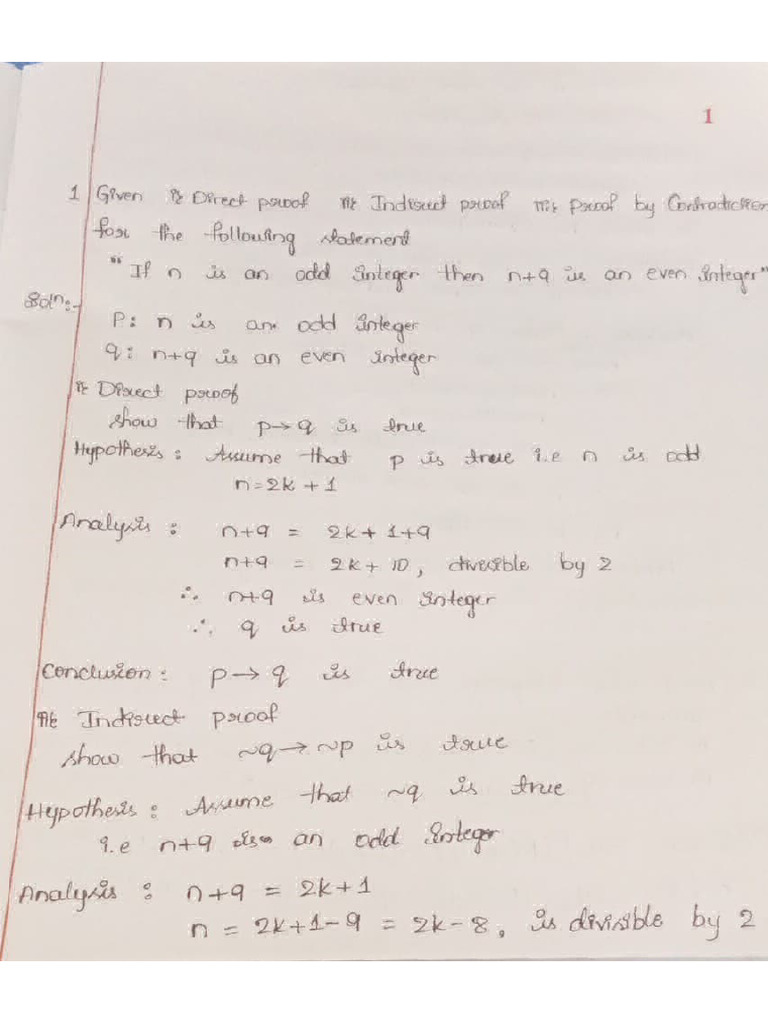 1
1 Given i) Direct proof ii) Indirect proof iii) Proof by Contradiction
for the following statement
"If n is an odd integer then n+9 is an even integer"
Soln:-
P: n is an odd integer
q: n+9 is an even integer
i) Direct proof
show that p→q is true
Hypothesis: Assume that p is true i.e n is odd
n=2k+1
Analysis: n+9 = 2k+1+9
n+9 = 2k+10, divisible by 2
∴ n+9 is even integer
∴ q is true
Conclusion: p→q is true
ii) Indirect proof
show that ~q→~p is true
Hypothesis: Assume that ~q is true
i.e n+9 is an odd integer
Analysis: n+9 = 2k+1
n = 2k+1-9 = 2k-8, is divisible by 2